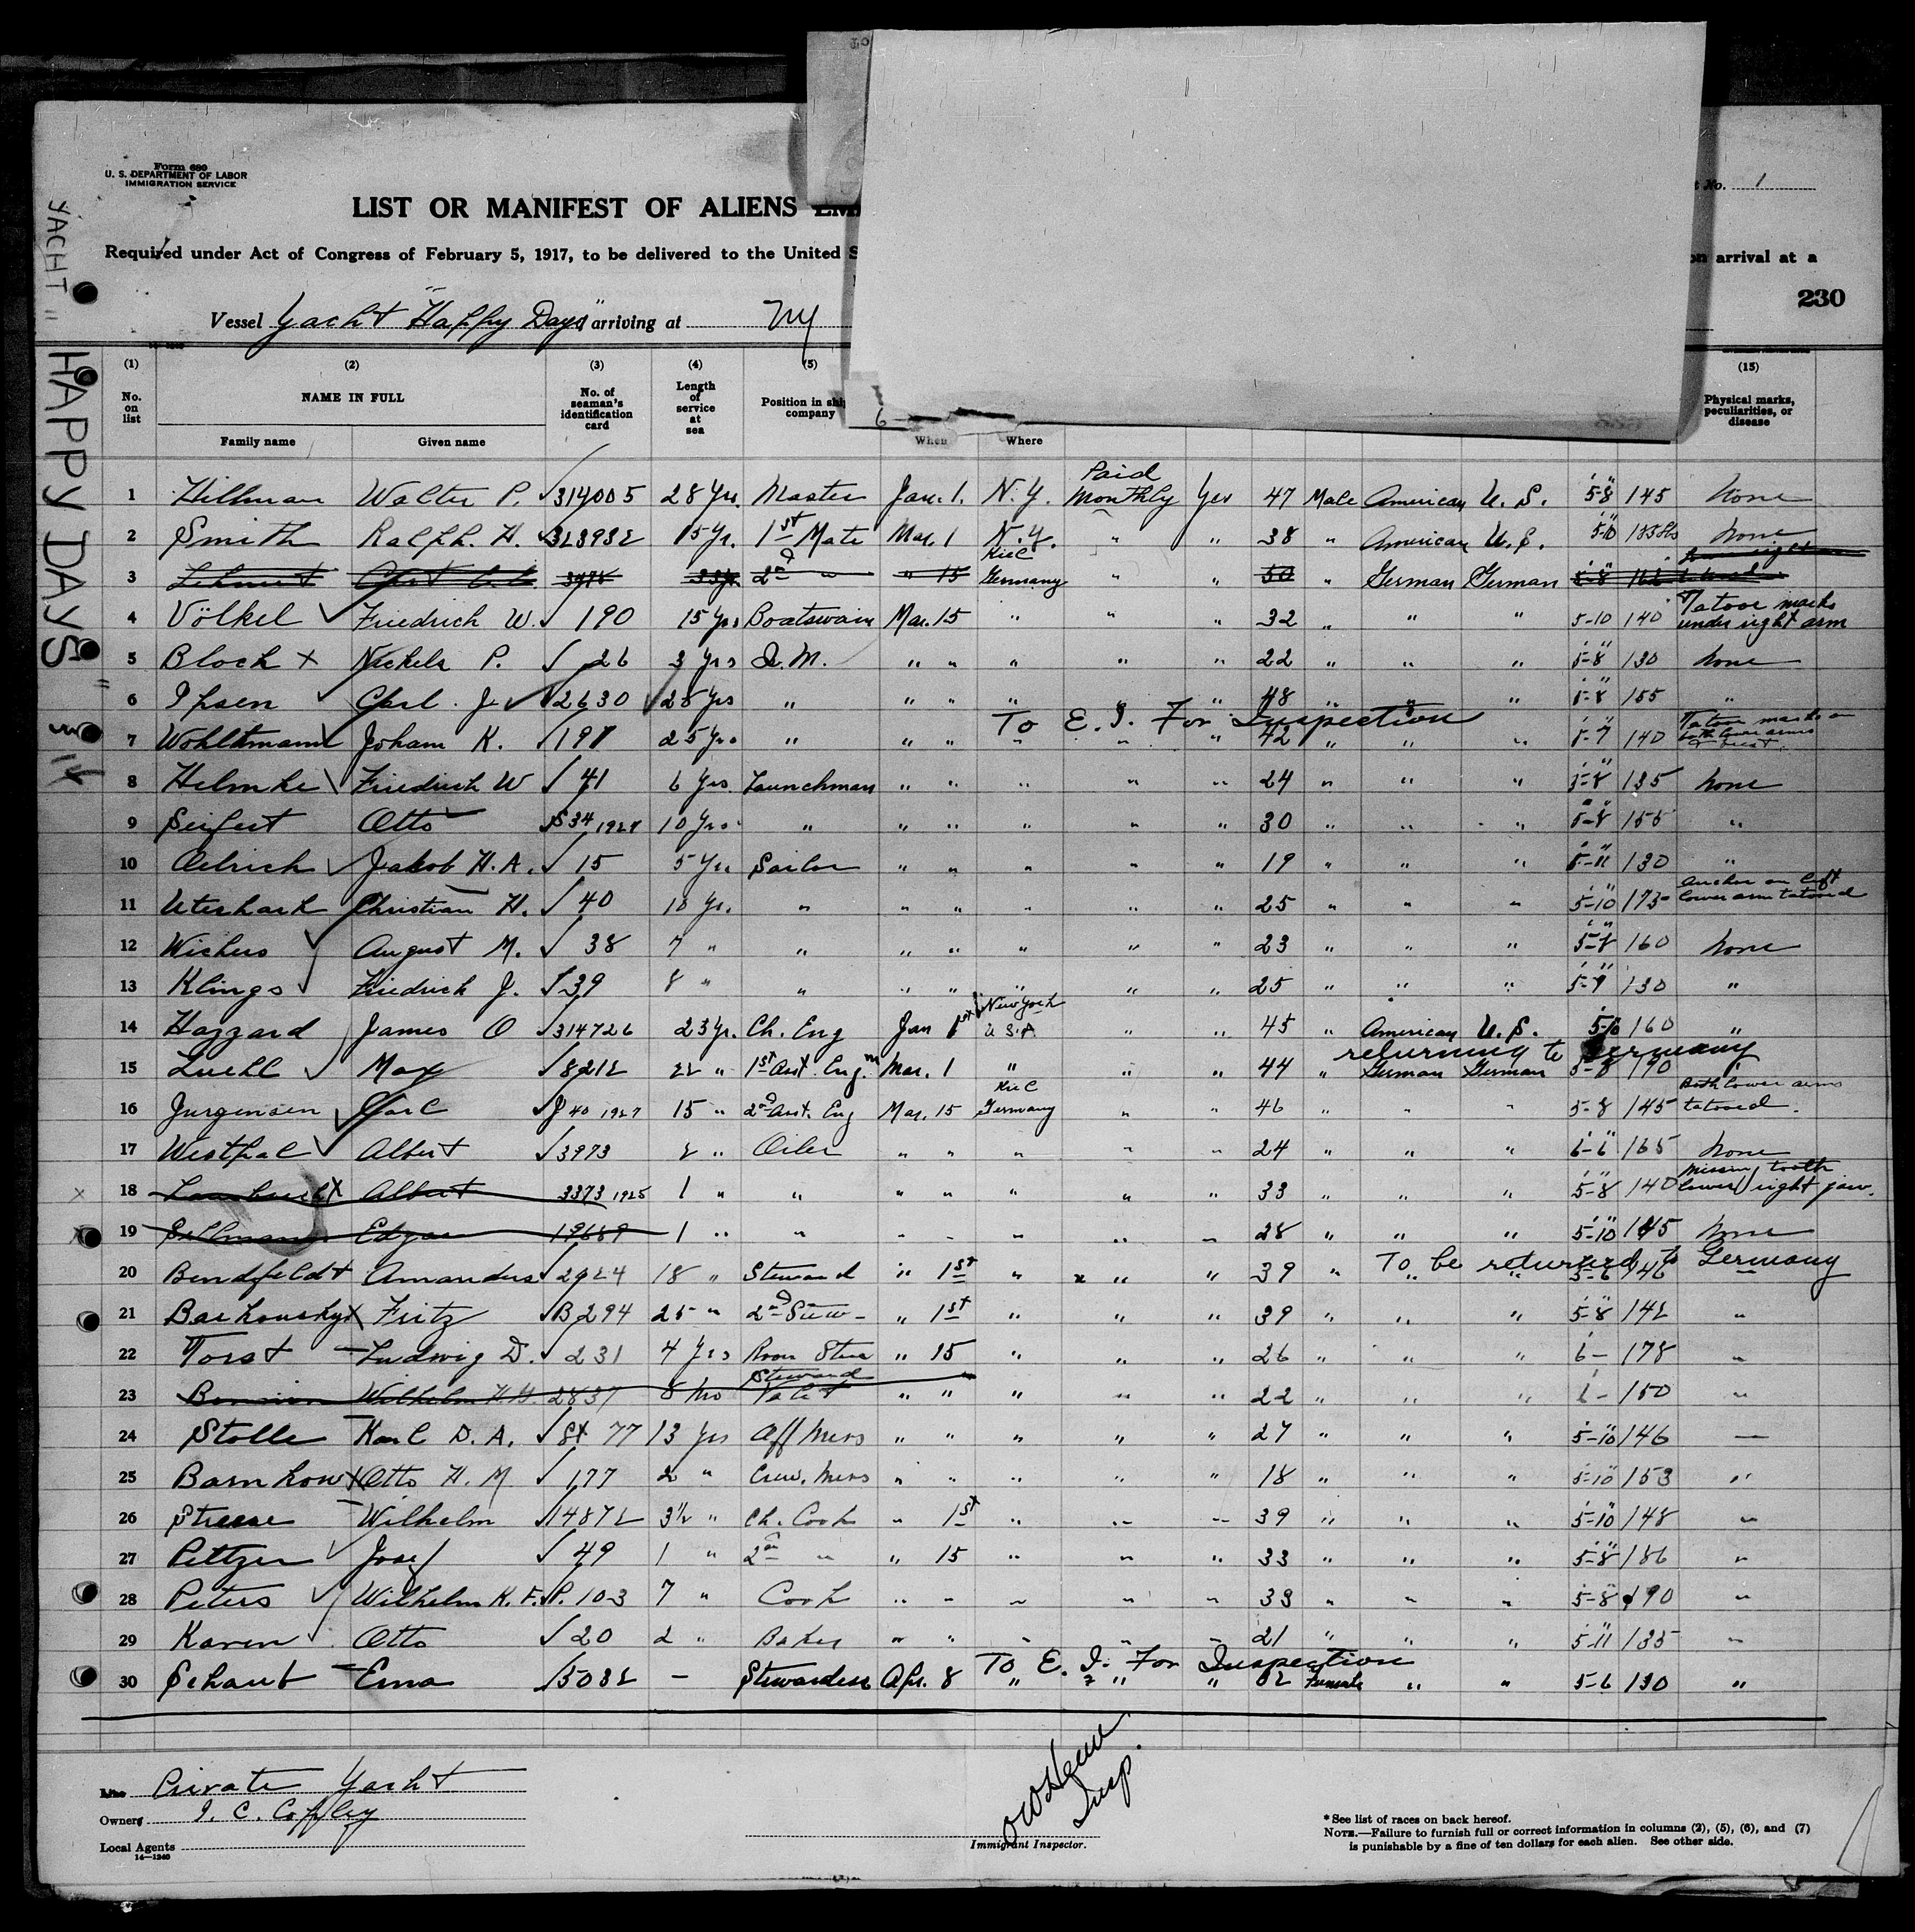 Form 680
U. S. DEPARTMENT OF LABOR
IMMIGRATION SERVICE
No. 1
LIST OR MANIFEST OF ALIENS
Required under Act of Congress of February 5, 1917, to be delivered to the United S
on arrival at a
230
Vessel Yacht "Happy Days" arriving at NY
YACHT "HAPPY DAYS"
(1) (2) (3) (4) (5) (15)
No. on list
NAME IN FULL
Family name Given name
No. of seaman's identification card
Length of service at sea
Position in ship company
When Where
Physical marks, peculiarities, or disease
1 Hillman Walter P. 314005 28 Yrs. Master Jan. 1. N.Y. Paid Monthly Yes 47 Male American U. S. 5-8 145 None
2 Smith Ralph H. 15 Yr. 1st Mate Mar. 1 N.Y. " " 38 " American U. S. 5-10 None
3 2nd " " 15 Kiel Germany " " 30 " German German 5-8
4 Völkel Friedrich W. 190 15 Yrs Boatswain Mar. 15 " " " 32 " " " 5-10 140 Tatooe marks under right arm
5 Bloch X Nickels P. 26 3 Yrs Q. M. " " " " " 22 " " " 5-8 130 None
6 Ipsen Carl J. 2630 28 Yrs " " " " " " 48 " " " 5-8 155 "
To E. I. For Inspection
7 Wohltmann Joham K. 197 25 Yrs " " " " " " 42 " " " 5-7 140
8 Helmke Friedrich W 41 6 Yrs Launchman " " " " " 24 " " " 5-8 135 None
9 Seifert Otto S34 1927 10 Yrs " " " " " " 30 " " " 5-8 155 "
10 Oelrich Jakob H. A. 15 5 Yrs Sailor " " " " " 19 " " " 5-11 130 "
11 Uterhark Christian H. 40 10 Yr. " " " " " " 25 " " " 5-10 173 Anchor on left lower arm tatooed
12 Wichers August M. 38 7 " " " " " " " 23 " " " 160 None
13 Klings Friedrich J. 39 8 " " " " " " " 25 " " " 5-9 130 "
14 Hazzard James O 314726 23 Yr. Ch. Eng Jan 1st New York U.S.A. " " 45 " American U. S. 5-10 160 "
returning to Germany
15 Luehl Max 8212 22 " 1st Asst. Eng. Mar. 1 " " " 44 " German German 5-8 190 "
16 Jurgensen Carl J 40 1927 15 " 2nd Asst. Eng Mar. 15 Kiel Germany " " 46 " " " 5-8 145 Both lower arms tatooed.
17 Westphal Albert 3973 2 " Oiler " " " " " 24 " " " 6-6 165 None
18 Albert 3373 1925 1 " " " " " " " 33 " " " 5-8 140 Missing tooth lower right jaw.
19 Edgar 19687 1 " " " " " " " 28 " " " 5-10 145 None
To be returned to Germany
20 Bendfeldt Amandus 2924 18 " Steward " 1st " " " 39 " " " 5-6 146
21 Fritz B294 25 " 2nd Stew- " 1st " " " 39 " " " 5-8 142 "
22 Torst Ludwig D. 231 4 Yrs Room Stew " 15 " " " 26 " " " 6- 178 "
23 Wilhelm 2837 8 Mo Steward Valet " " " " " 22 " " " 6- 150 "
24 Stolle Karl D. A. St 77 13 Yrs Off Mess " " " " " 27 " " " 5-10 146 —
25 Barnhow X Otto H. M 177 2 " Crew. Mess " " " " " 18 " " " 5-10 153 "
26 Wilhelm 14872 3½ " Ch. Cook " 1st " " " 39 " " " 5-10 148 "
27 Peltzer Josef 49 1 " 2nd " " 15 " " " 33 " " " 5-8 186 "
28 Peters Wilhelm K. F. P. 103 7 " Cook " " " " " 33 " " " 5-8 190 "
29 Karen Otto 20 2 " Baker " " " " " 21 " " " 5-11 135 "
To E. I. For Inspection
30 Schaut Erna 5032 — Stewardess Apr. 8 " " " 32 Female " " 5-6 130 "
Line Private Yacht
Owners I. C. Copley
Local Agents
14—1240
Insp.
Immigrant Inspector.
* See list of races on back hereof.
NOTE.—Failure to furnish full or correct information in columns (2), (5), (6), and (7)
is punishable by a fine of ten dollars for each alien. See other side.